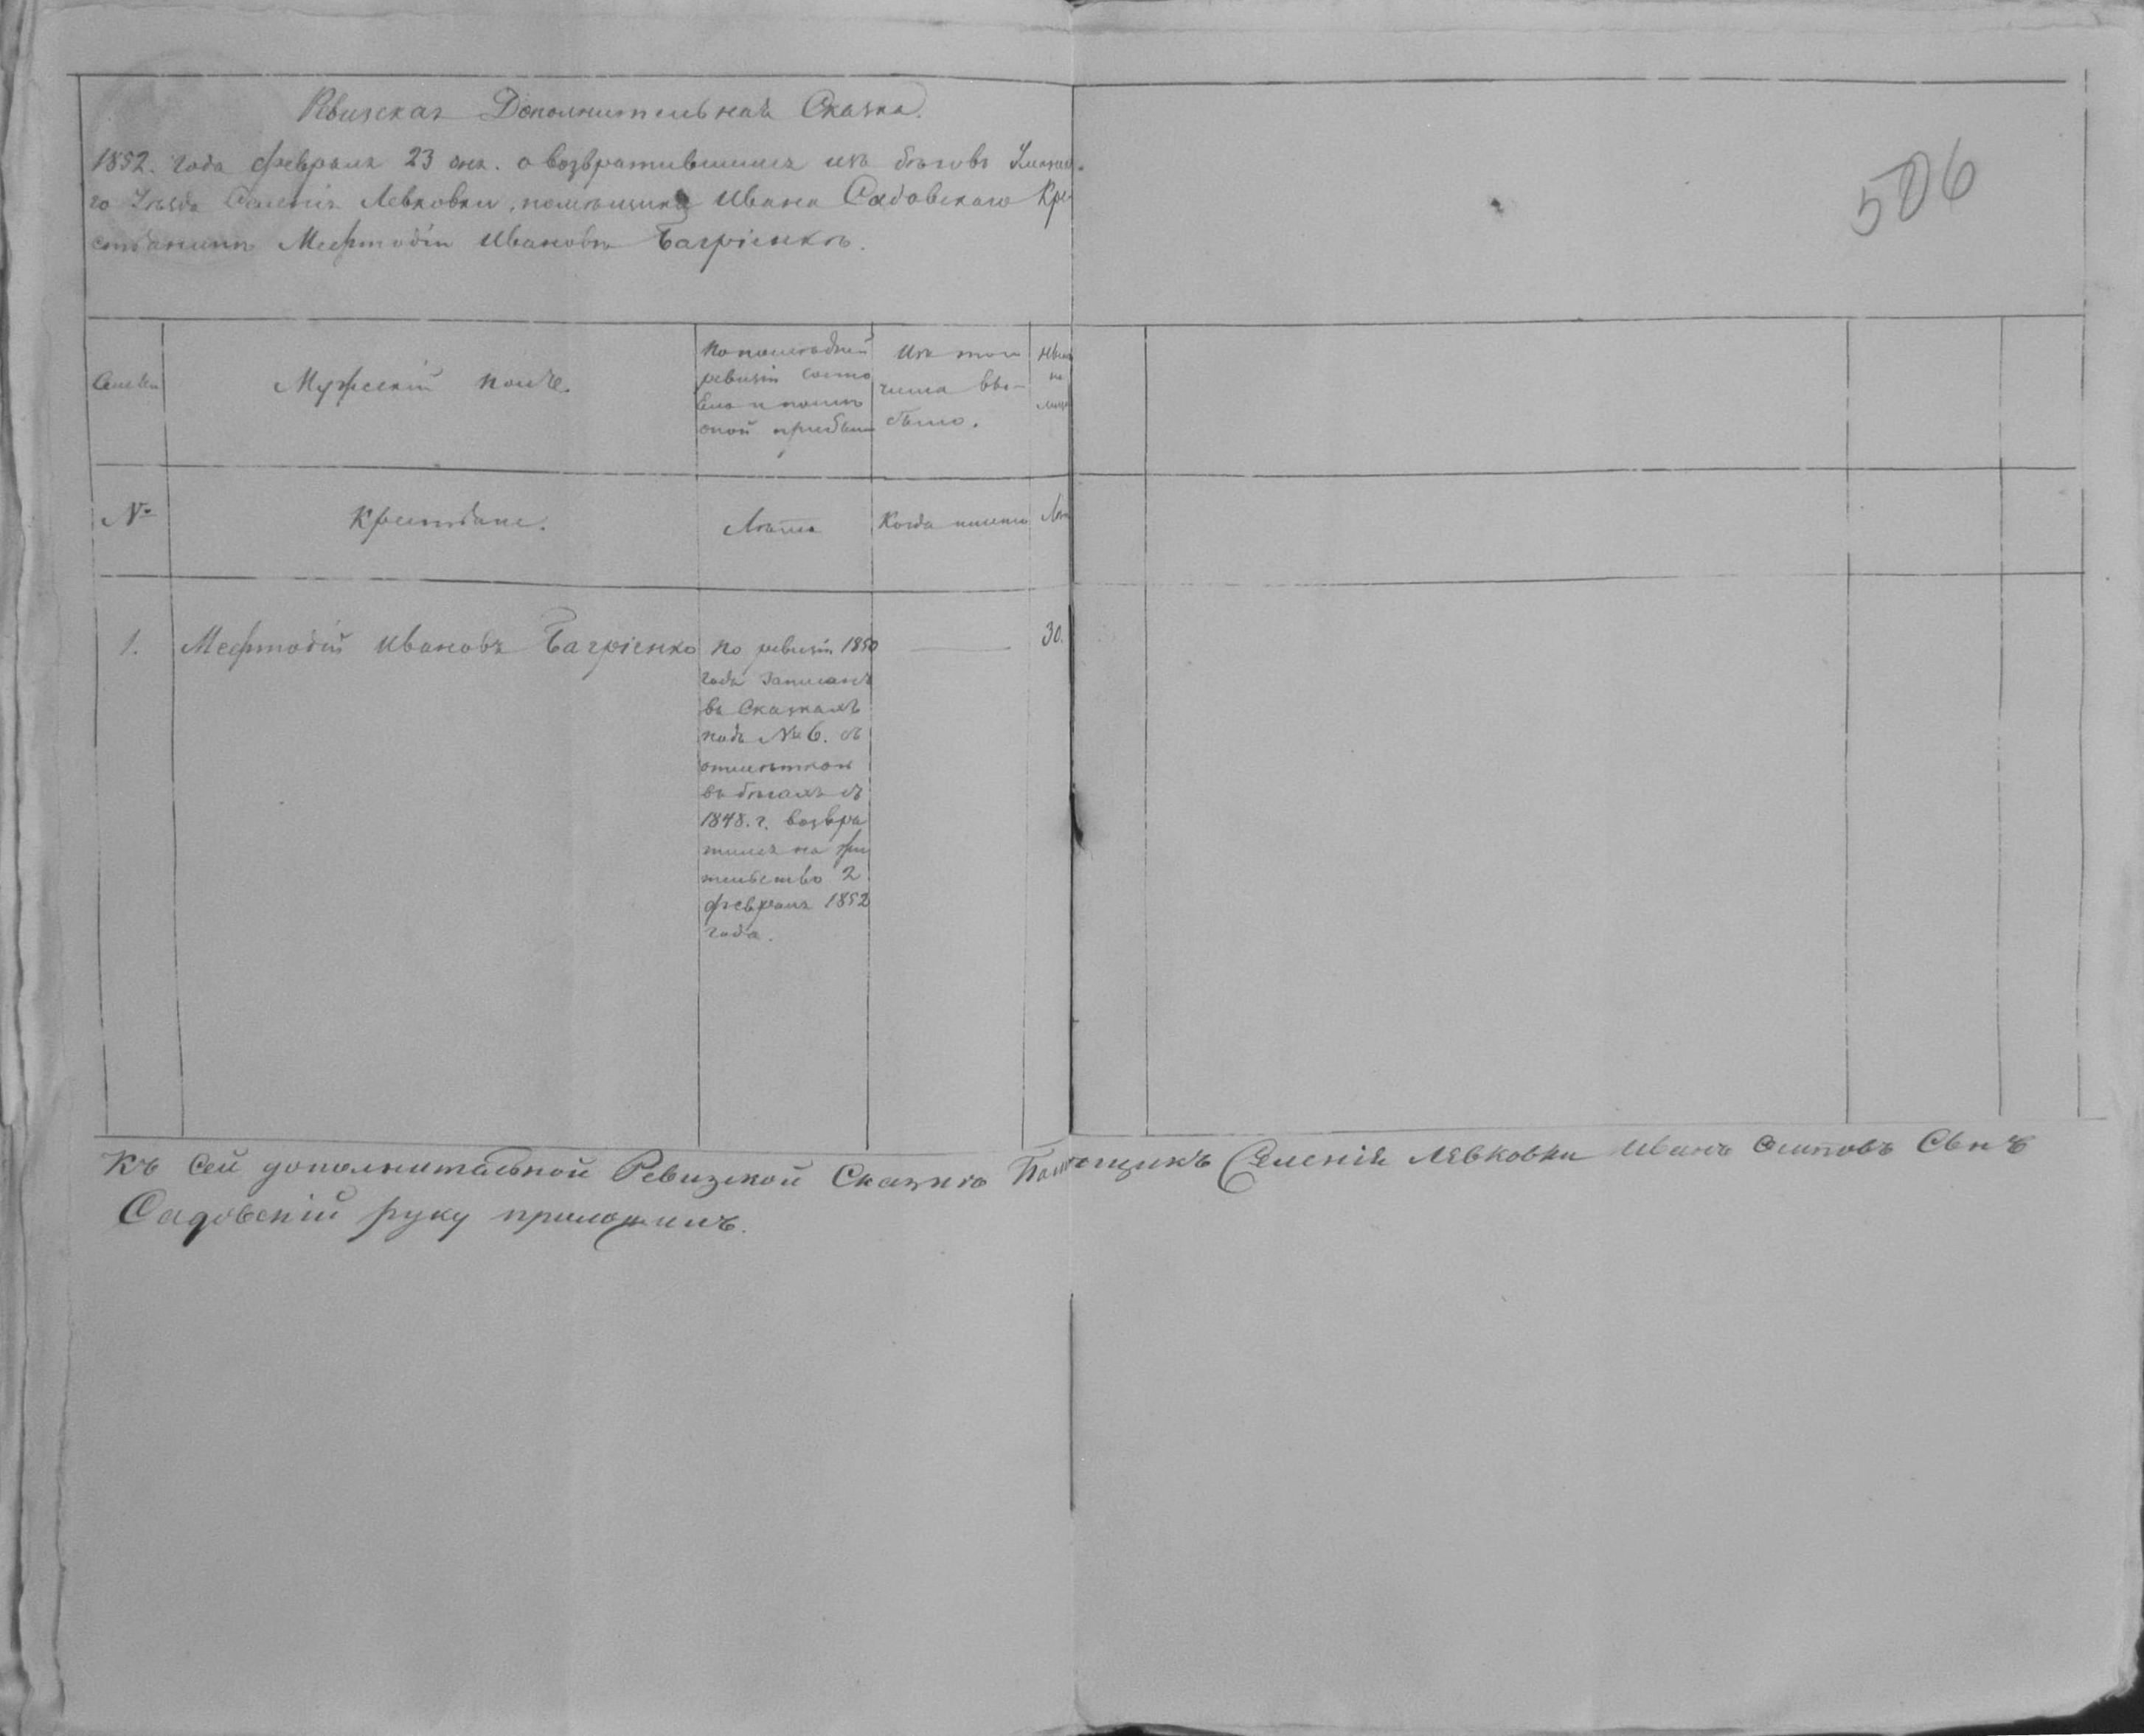 Рвизская Дополнительная Сказка.
506
1852. года Февраля 23 дня. о возвратившимся изъ бѣговъ
го Уѣзда Селенія Левковки, помѣщика Ивана Садовскаго Кре
стьянинѣ Мефтодіи Ивановѣ Багріенкѣ.
Семьи
Мужескій полъ.
По послѣдней
ревизіи состо
яло и послѣ
оной прибыло
Изъ того
числа вы-
было.
Нынѣ
на
лицо
№
Крестьяне.
Лѣта
Когда именно
Лѣта
1.
Мефтодій Ивановъ Багріенко
По ревизіи 1850
года записанъ
въ Сказкахъ
подъ № 6. съ
отмѣткой
въ бѣгахъ съ
1848. г. возвра
тился на жи
тельство 2
февраля 1852
года.
30.
Къ Сей дополнитальной Ревизской Сказкѣ Помѣщикъ Селенія Лявковки Иванъ Осиповъ Сынъ
Садовскій руку приложилъ.